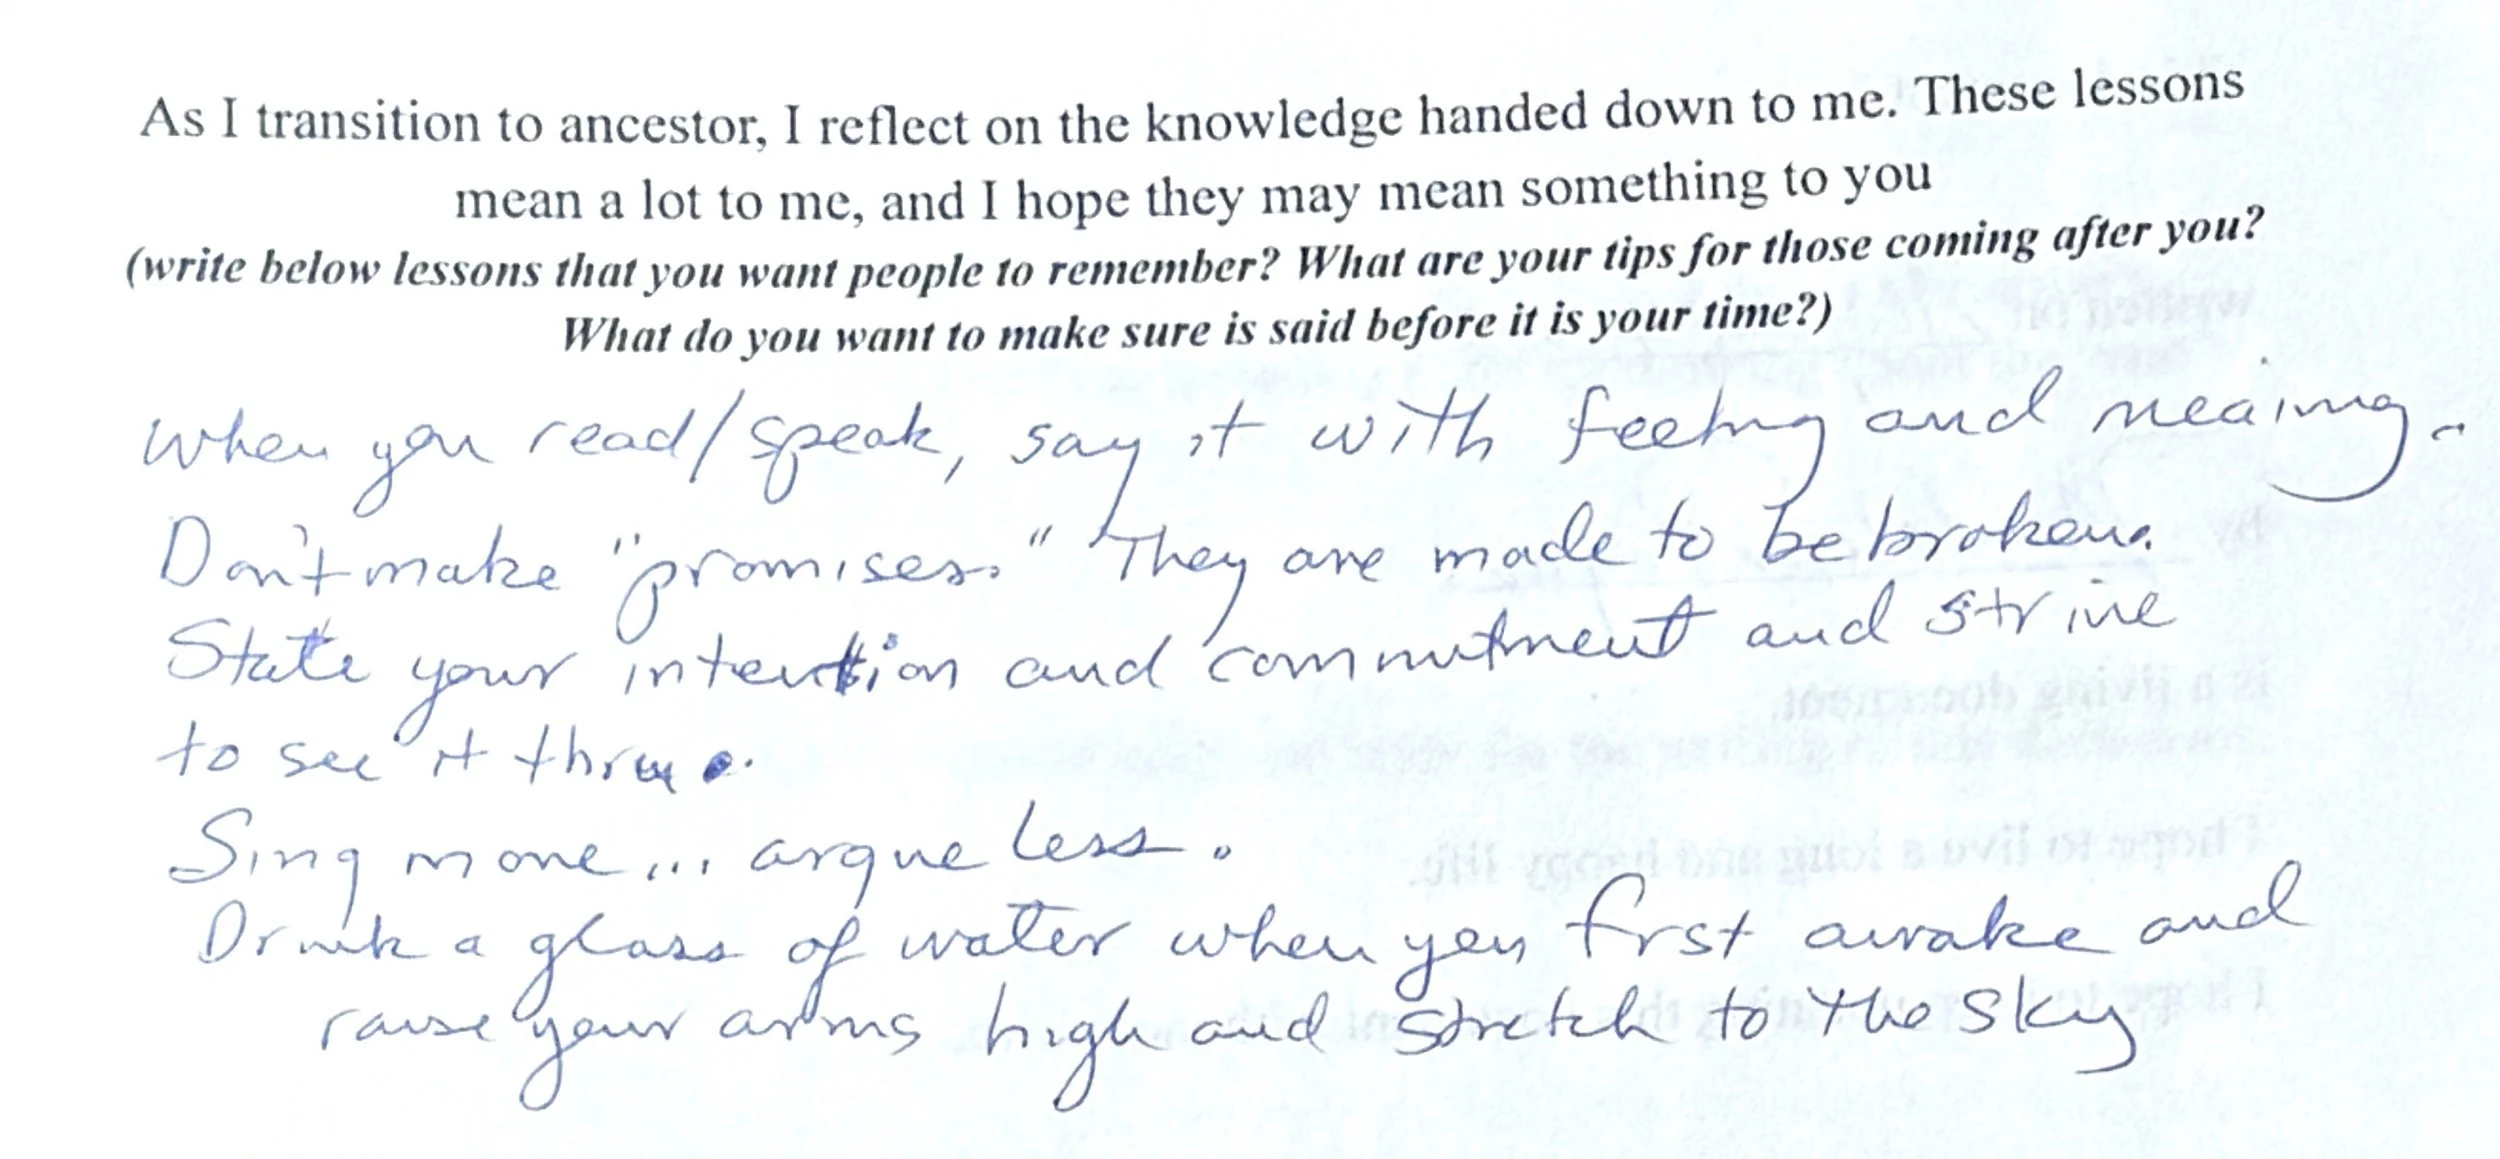 As I transition to ancestor, I reflect on the knowledge handed down to me. These lessons
mean a lot to me, and I hope they may mean something to you
(write below lessons that you want people to remember? What are your tips for those coming after you?
What do you want to make sure is said before it is your time?)
When you read/speak, say it with feeling and meaning.
Don't make "promises." They are made to be broken.
State your intention and commitment and strive
to see it thru.
Sing more... argue less.
Drink a glass of water when you first awake and
raise your arms high and stretch to the sky